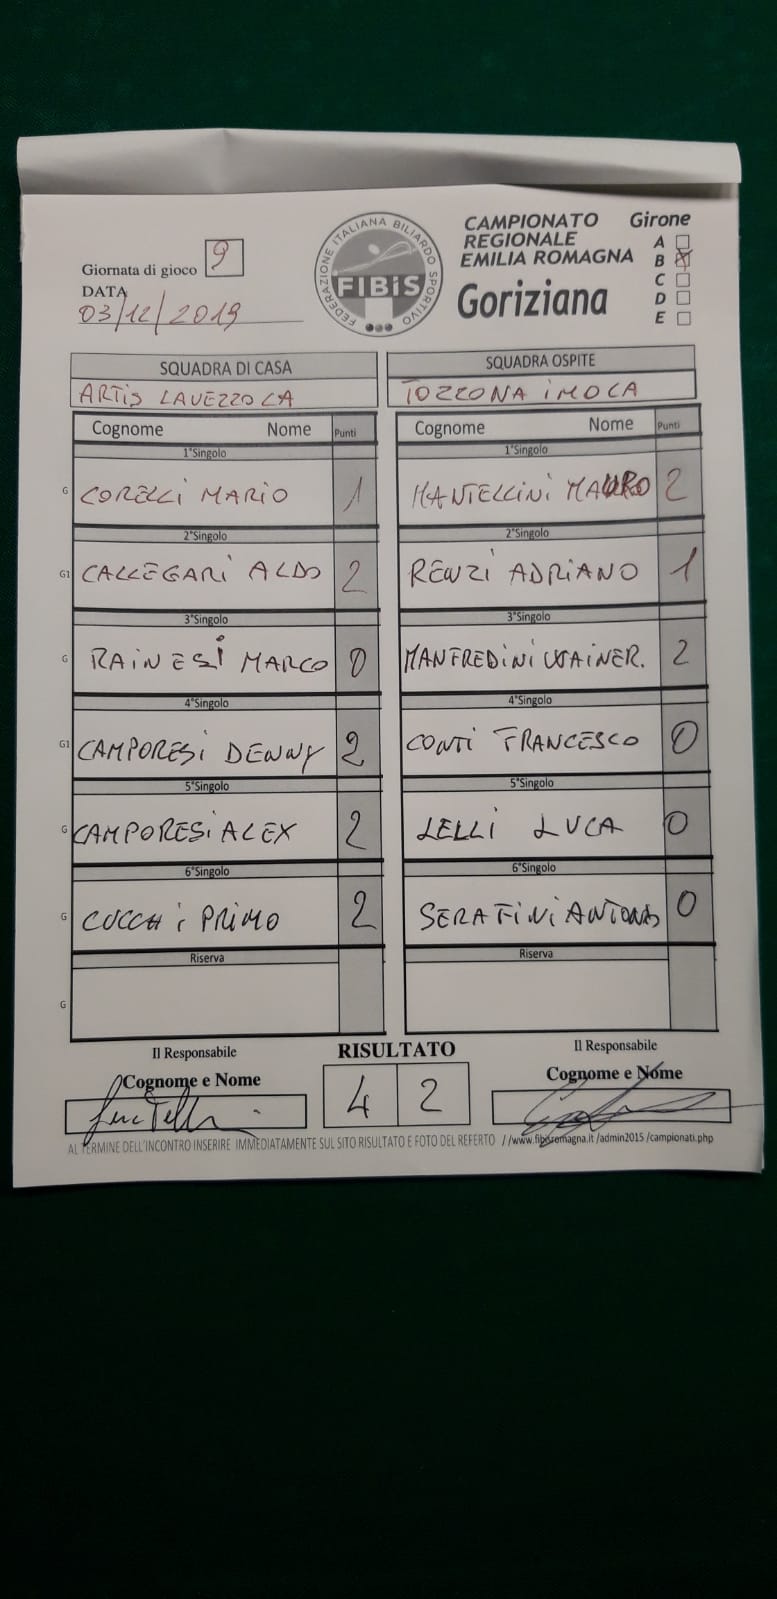 Giornata di gioco 9
DATA
03/12/2019
FEDERAZIONE ITALIANA BILIARDO SPORTIVO
FIBiS
CAMPIONATO
REGIONALE
EMILIA ROMAGNA
Goriziana
Girone
A
B X
C
D
E
SQUADRA DI CASA SQUADRA OSPITE
ARTIS LAVEZZOLA TOZZONA IMOLA
Cognome Nome Punti Cognome Nome Punti
1°Singolo 1°Singolo
G CORELLI MARIO 1 MANTELLINI MAURO 2
2°Singolo 2°Singolo
G1 CALLEGARI ALDO 2 RENZI ADRIANO 1
3°Singolo 3°Singolo
G RAINESI MARCO 0 MANFREDINI WAINER. 2
4°Singolo 4°Singolo
G1 CAMPORESI DENNY 2 CONTI FRANCESCO 0
5°Singolo 5°Singolo
G CAMPORESI ALEX 2 LELLI LUCA 0
6°Singolo 6°Singolo
G CUCCHI PRIMO 2 SERAFINI ANTONIO 0
Riserva Riserva
G
Il Responsabile RISULTATO Il Responsabile
Cognome e Nome 4 2 Cognome e Nome
AL TERMINE DELL'INCONTRO INSERIRE IMMEDIATAMENTE SUL SITO RISULTATO E FOTO DEL REFERTO //www.fibisromagna.it /admin2015 /campionati.php